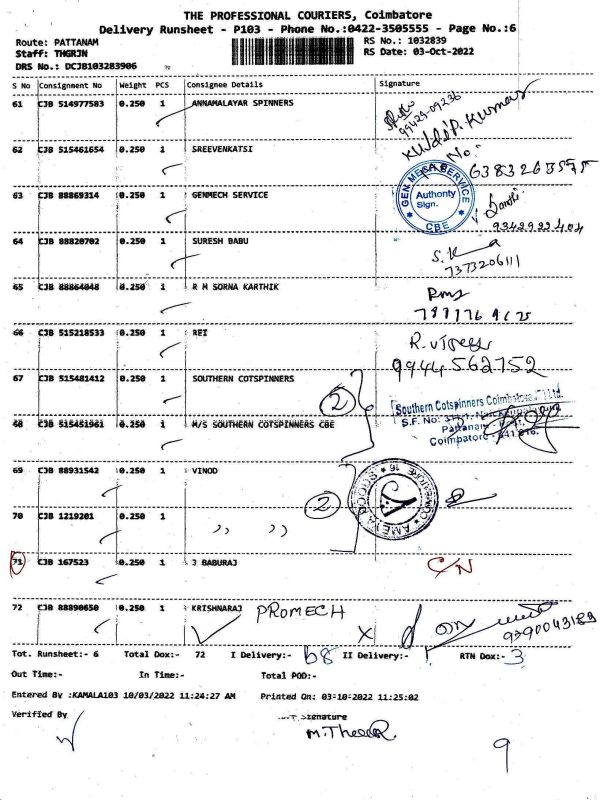 THE PROFESSIONAL COURIERS, Coimbatore
Delivery Runsheet - P103 - Phone No.:0422-3505555 - Page No.:6
Route: PATTANAM
Staff: THGRJN
DRS No.: DCJB103283906
RS No.: 1032839
RS Date: 03-Oct-2022
S No Consignment No Weight PCS Consignee Details Signature
61 CJB 514977583 0.250 1 ANNAMALAYAR SPINNERS
99429-09236
62 CJB 515461654 0.250 1 SREEVENKATSI
Kuldip. Kumar
No:
63 CJB 88869314 0.250 1 GENMECH SERVICE
GEN MECH SERVICE
Authority
Sign.
CBE
9342922404
64 CJB 88820702 0.250 1 SURESH BABU
7373206111
65 CJB 88864048 0.250 1 R M SORNA KARTHIK
Rms
66 CJB 515218533 0.250 1 REI
9944562752
67 CJB 515481412 0.250 1 SOUTHERN COTSPINNERS
2
Southern Cotspinners Coimbatore Ltd.
S.F. No:
Pattanam
Coimbatore - 641 016.
68 CJB 515451961 0.250 1 M/S SOUTHERN COTSPINNERS CBE
69 CJB 88931542 0.250 1 VINOD
2
70 CJB 1219201 0.250 1 ,, ,,
71 CJB 167523 0.250 1 J BABURAJ C/N
72 CJB 88890650 0.250 1 KRISHNARAJ PROMECH
X
9390043189
Tot. Runsheet:- 6 Total Dox:- 72 I Delivery:- 68 II Delivery:- 1 RTN Dox:- 3
Out Time:- In Time:- Total POD:-
Entered By :KAMALA103 10/03/2022 11:24:27 AM Printed On: 03-10-2022 11:25:02
Verified By Signature
9